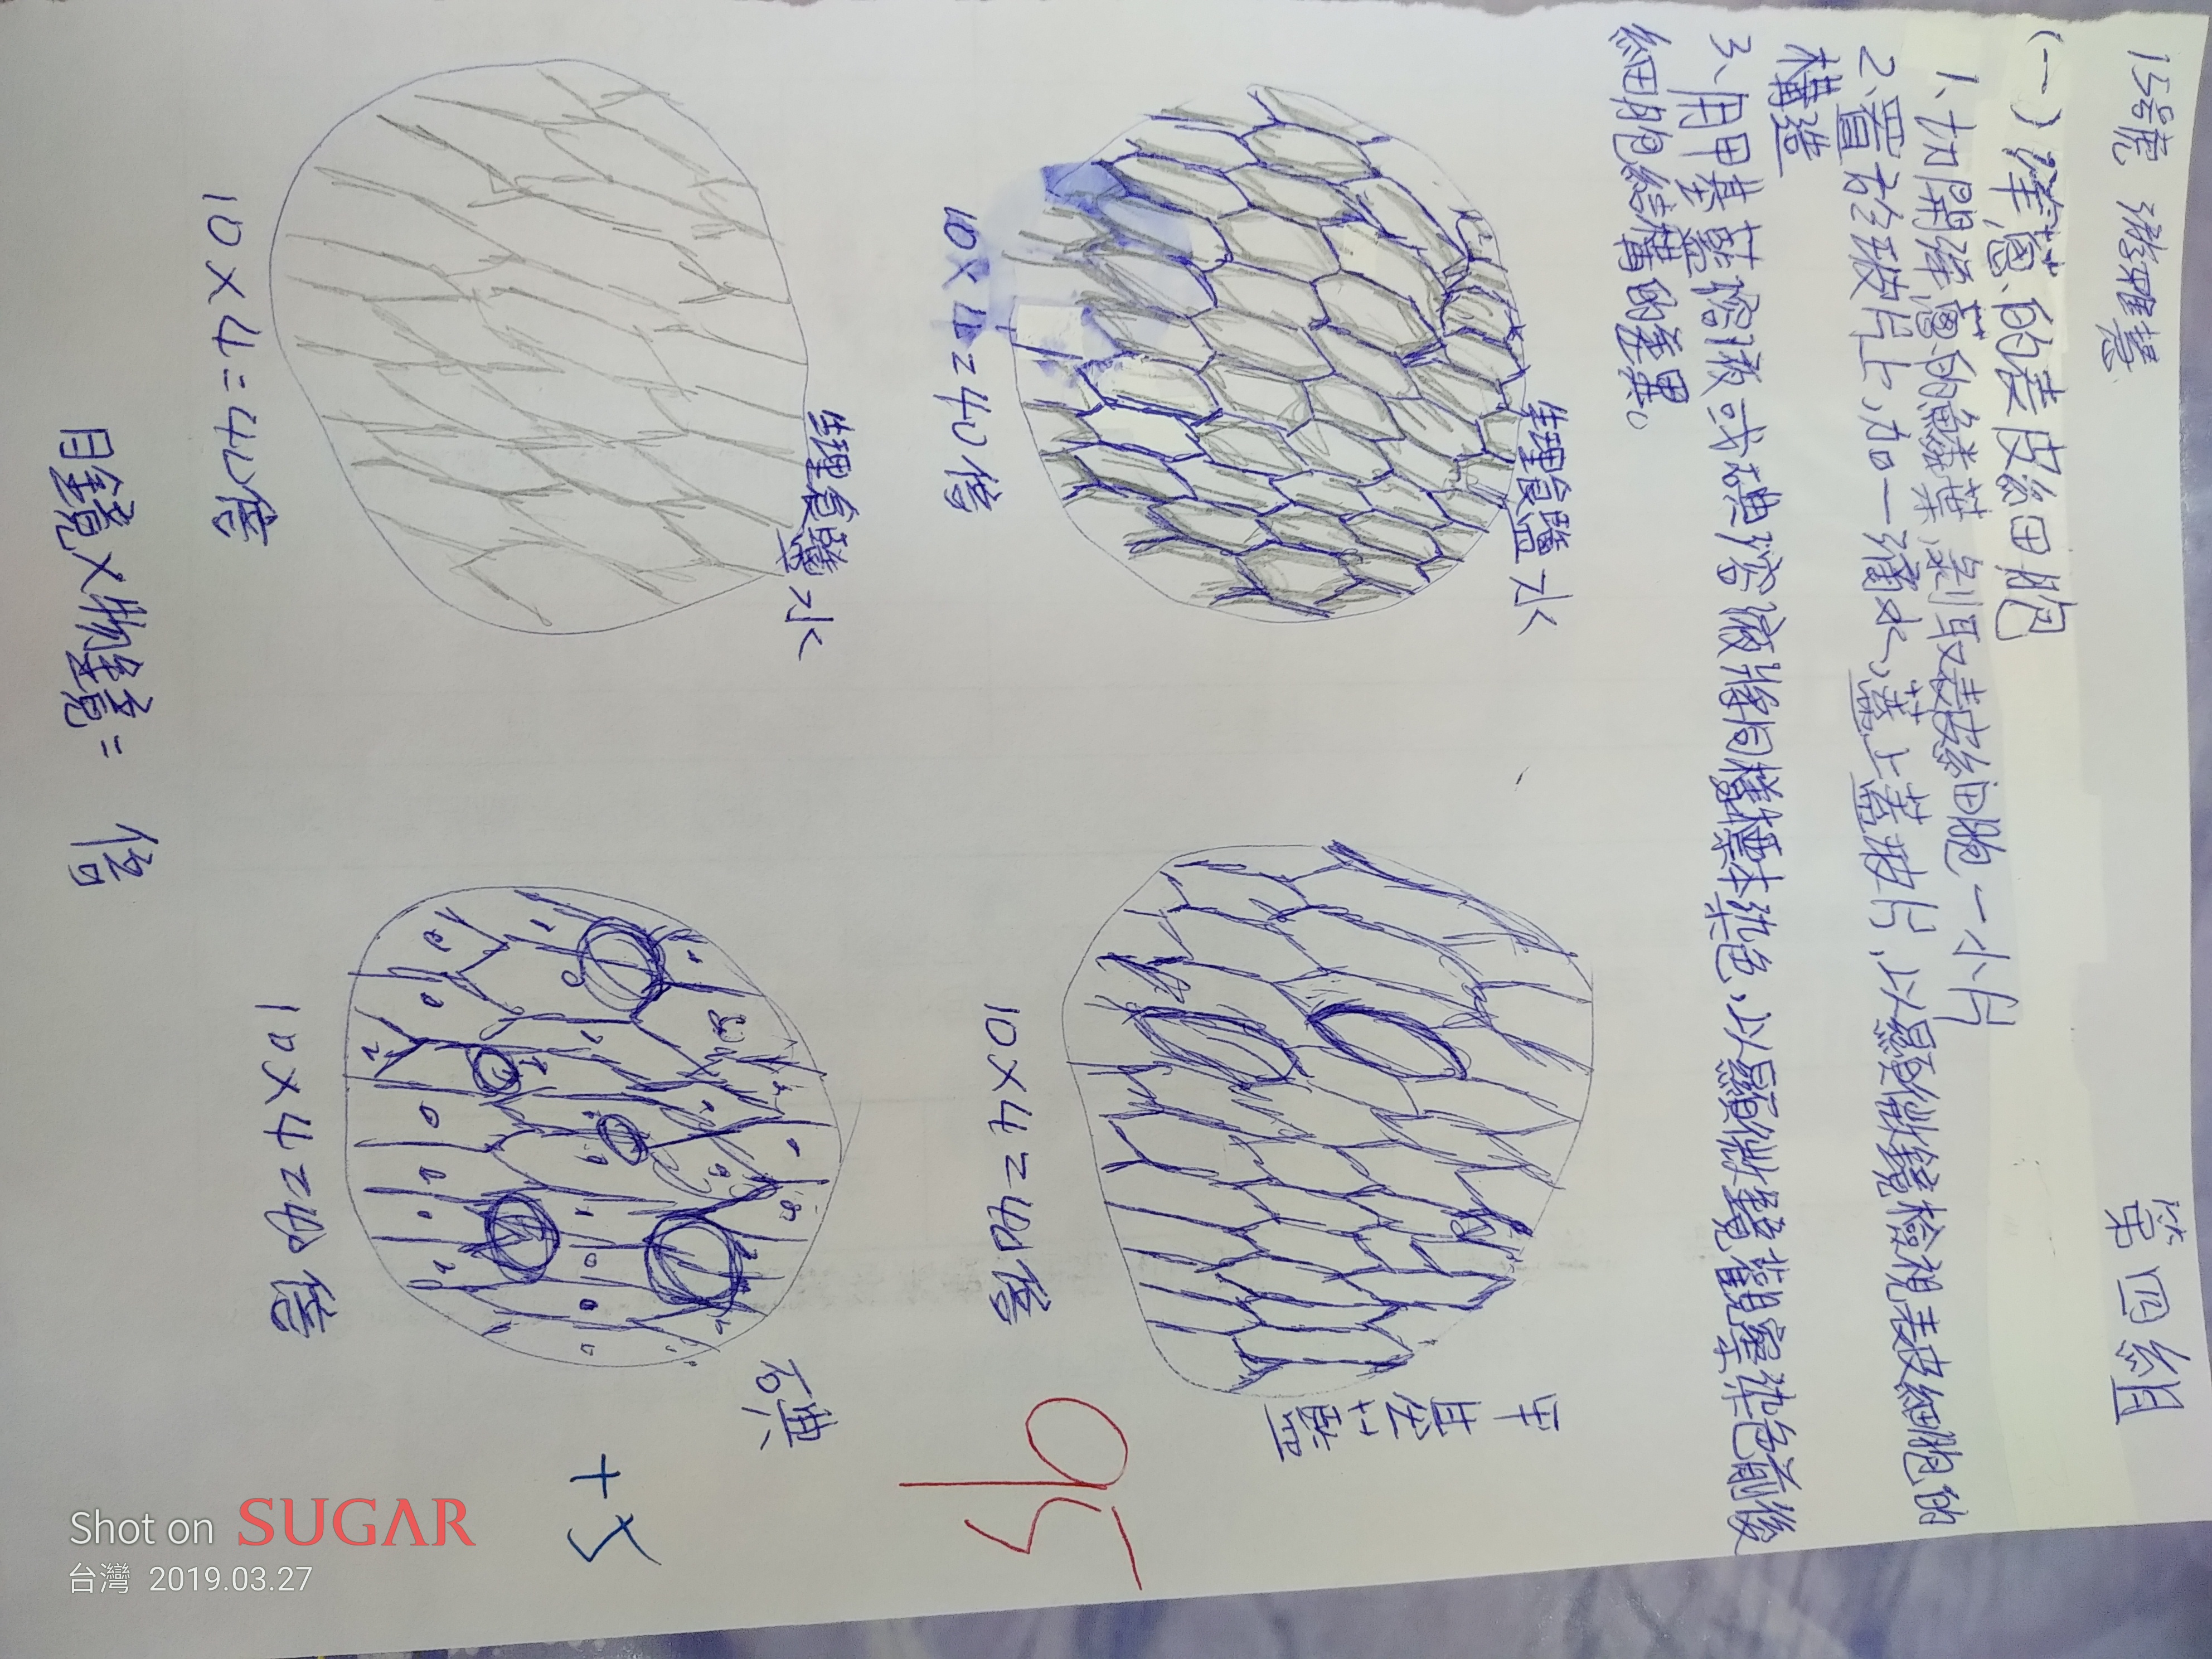 15號 游雅慧 第四組
(一)洋蔥的表皮細胞
1、切開洋蔥的鱗葉,撕取表皮細胞一小片
2、置於玻片上,加一滴水,蓋上蓋玻片,以顯微鏡檢視表皮細胞的
構造
3、用甲基藍溶液或碘溶液將相樣本染色,以顯微鏡觀察染色前後
細胞結構的差異。
生理食鹽水
10×4=40倍
甲基藍
10×4=40倍
95
生理食鹽水
10×4=40倍
碘
10×4=40倍
+5
目鏡×物鏡= 倍
Shot on SUGAR
台灣 2019.03.27